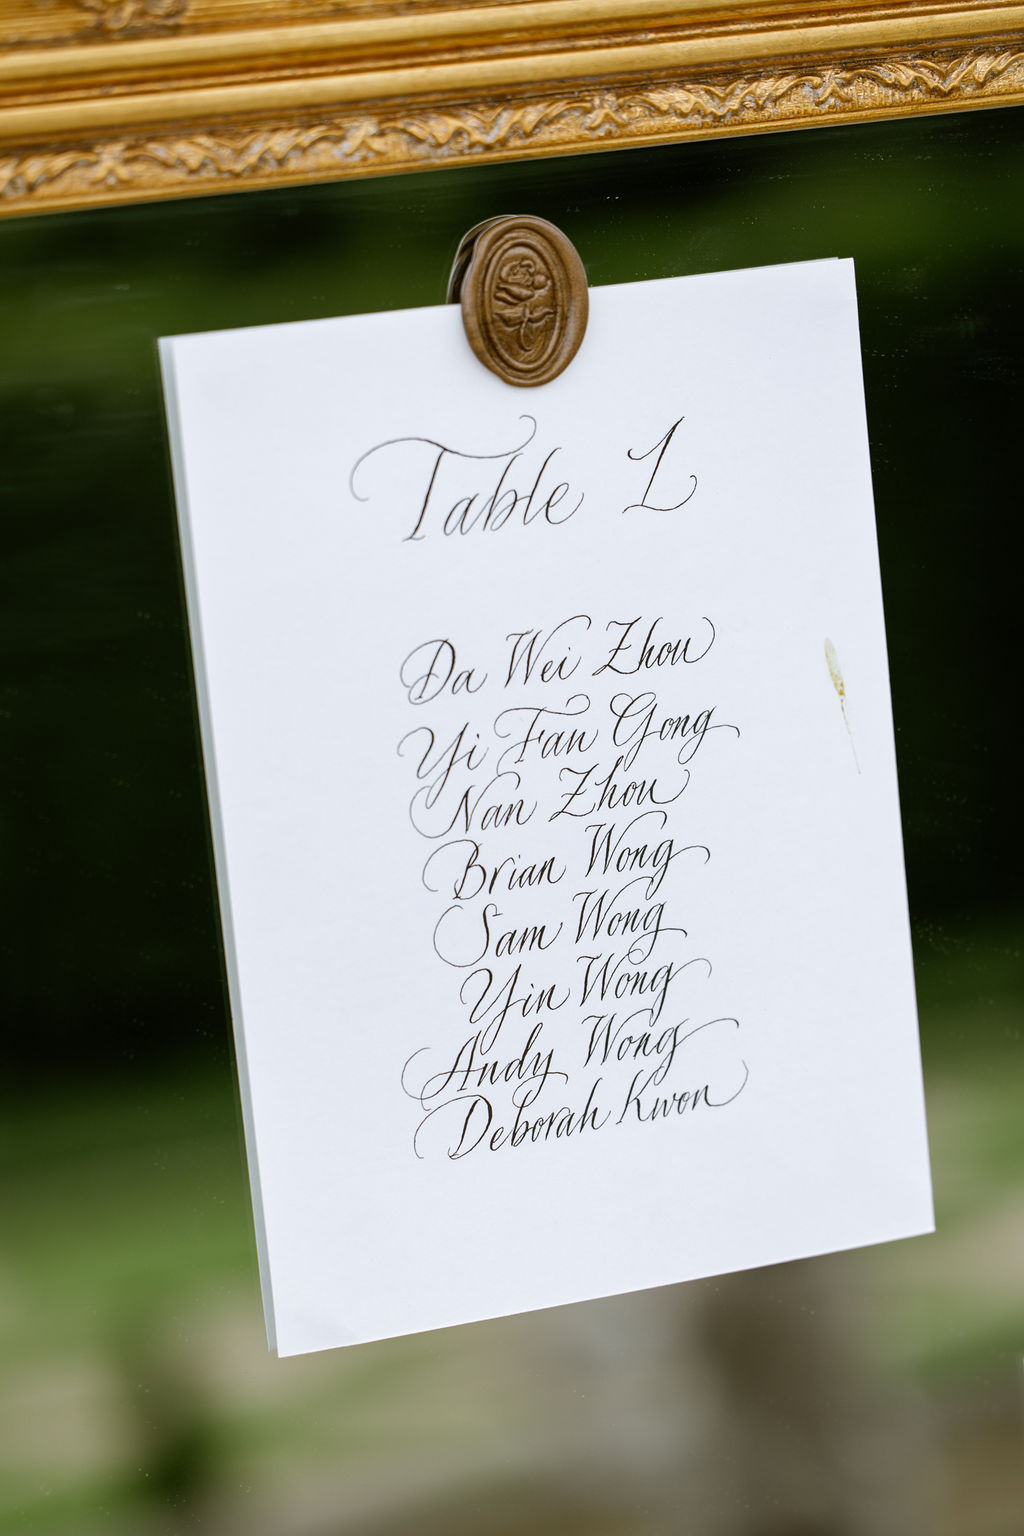 Table 1
Da Wei Zhou
Yi Fan Gong
Nan Zhou
Brian Wong
Sam Wong
Yin Wong
Andy Wong
Deborah Kwon